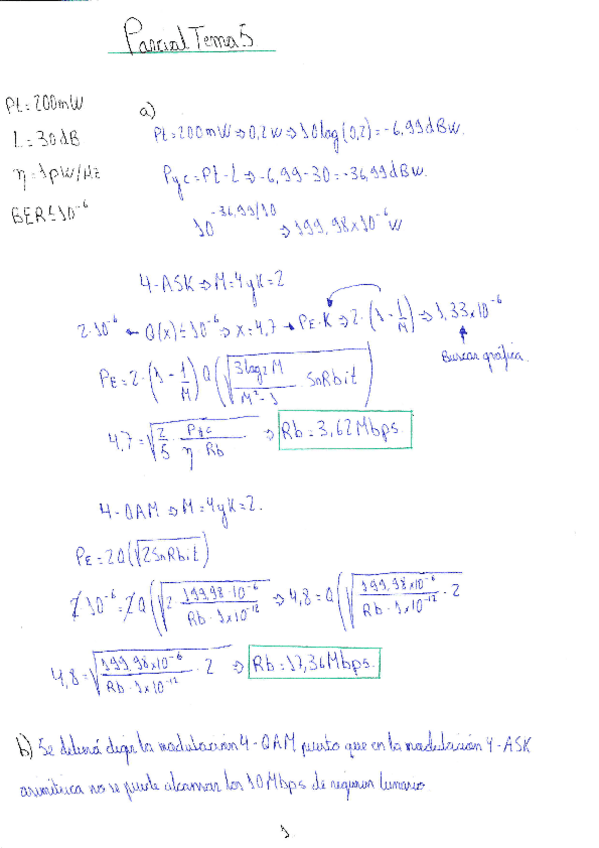 Parcial Tema 5
Pt = 200mW
L = 30dB
η = 1pW/Hz
BER ≤ 10^-6
a)
Pt = 200mW ⇒ 0,2w ⇒ 10log(0,2) = -6,99dBw.
Pyc = Pt - L ⇒ -6,99 - 30 = -36,99dBw.
10^(-36,99/10) ⇒ 199,98x10^-6 w
4-ASK ⇒ M = 4 y K = 2
2·10^-6 ← Q(x) = 10^-6 ⇒ x = 4,7 → PE·K ⇒ 2·(1 - 1/M) ⇒ 1,33x10^-6
Buscar gráfica.
PE = 2·(1 - 1/M) Q(√(3log2M/(M^2-1) · SnRbit))
4,7 = √(2/5 · Pyc/(η Rb)) ⇒ Rb = 3,62Mbps.
4-QAM ⇒ M = 4 y K = 2.
PE = 2Q(√(2SnRbit))
2 10^-6 = 2 Q(√(2· 199,98·10^-6/(Rb·1x10^-12))) ⇒ 4,8 = Q(√(199,98x10^-6/(Rb·1x10^-12) · 2))
4,8 = √(199,98x10^-6/(Rb·1x10^-12) · 2) ⇒ Rb = 17,36Mbps.
b) Se deberá elegir la modulación 4-QAM puesto que en la modulación 4-ASK
asimétrica no se puede alcanzar los 10Mbps de régimen binario
1